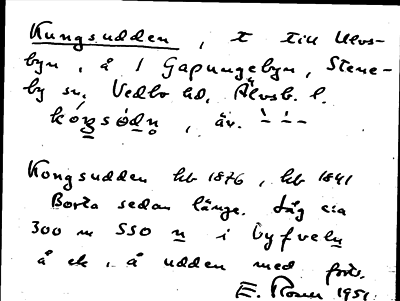 Kungsudden, t till Ulvs-
byn, å 1 Gapungebyn, Stene-
by sn. Vedbo hd, Älvsb. l.
, äv.
Kongsudden hb 1876, hb 1841
Borta sedan länge. Låg c:a
300 m SSO n i byfveln
å ek, å udden med
E. 1951.